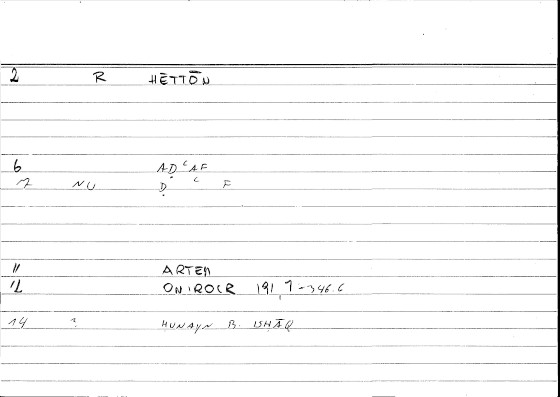 2 R HĒTTŌN
6 AḌʿAF
7 NU Ḍ ʿ F
11 ARTEM
12 ONIROCR 191,7-346.6
14 ? HUNAYN B. ISHĀQ